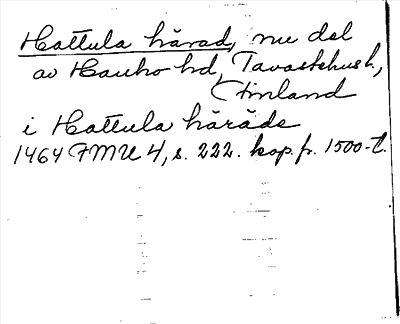 Hattula härad, nu del
av Hauho hd, Tavastehus l.,
Finland
i Hattula häräde
1464 FMU 4, s. 222. kop. fr. 1500-t.